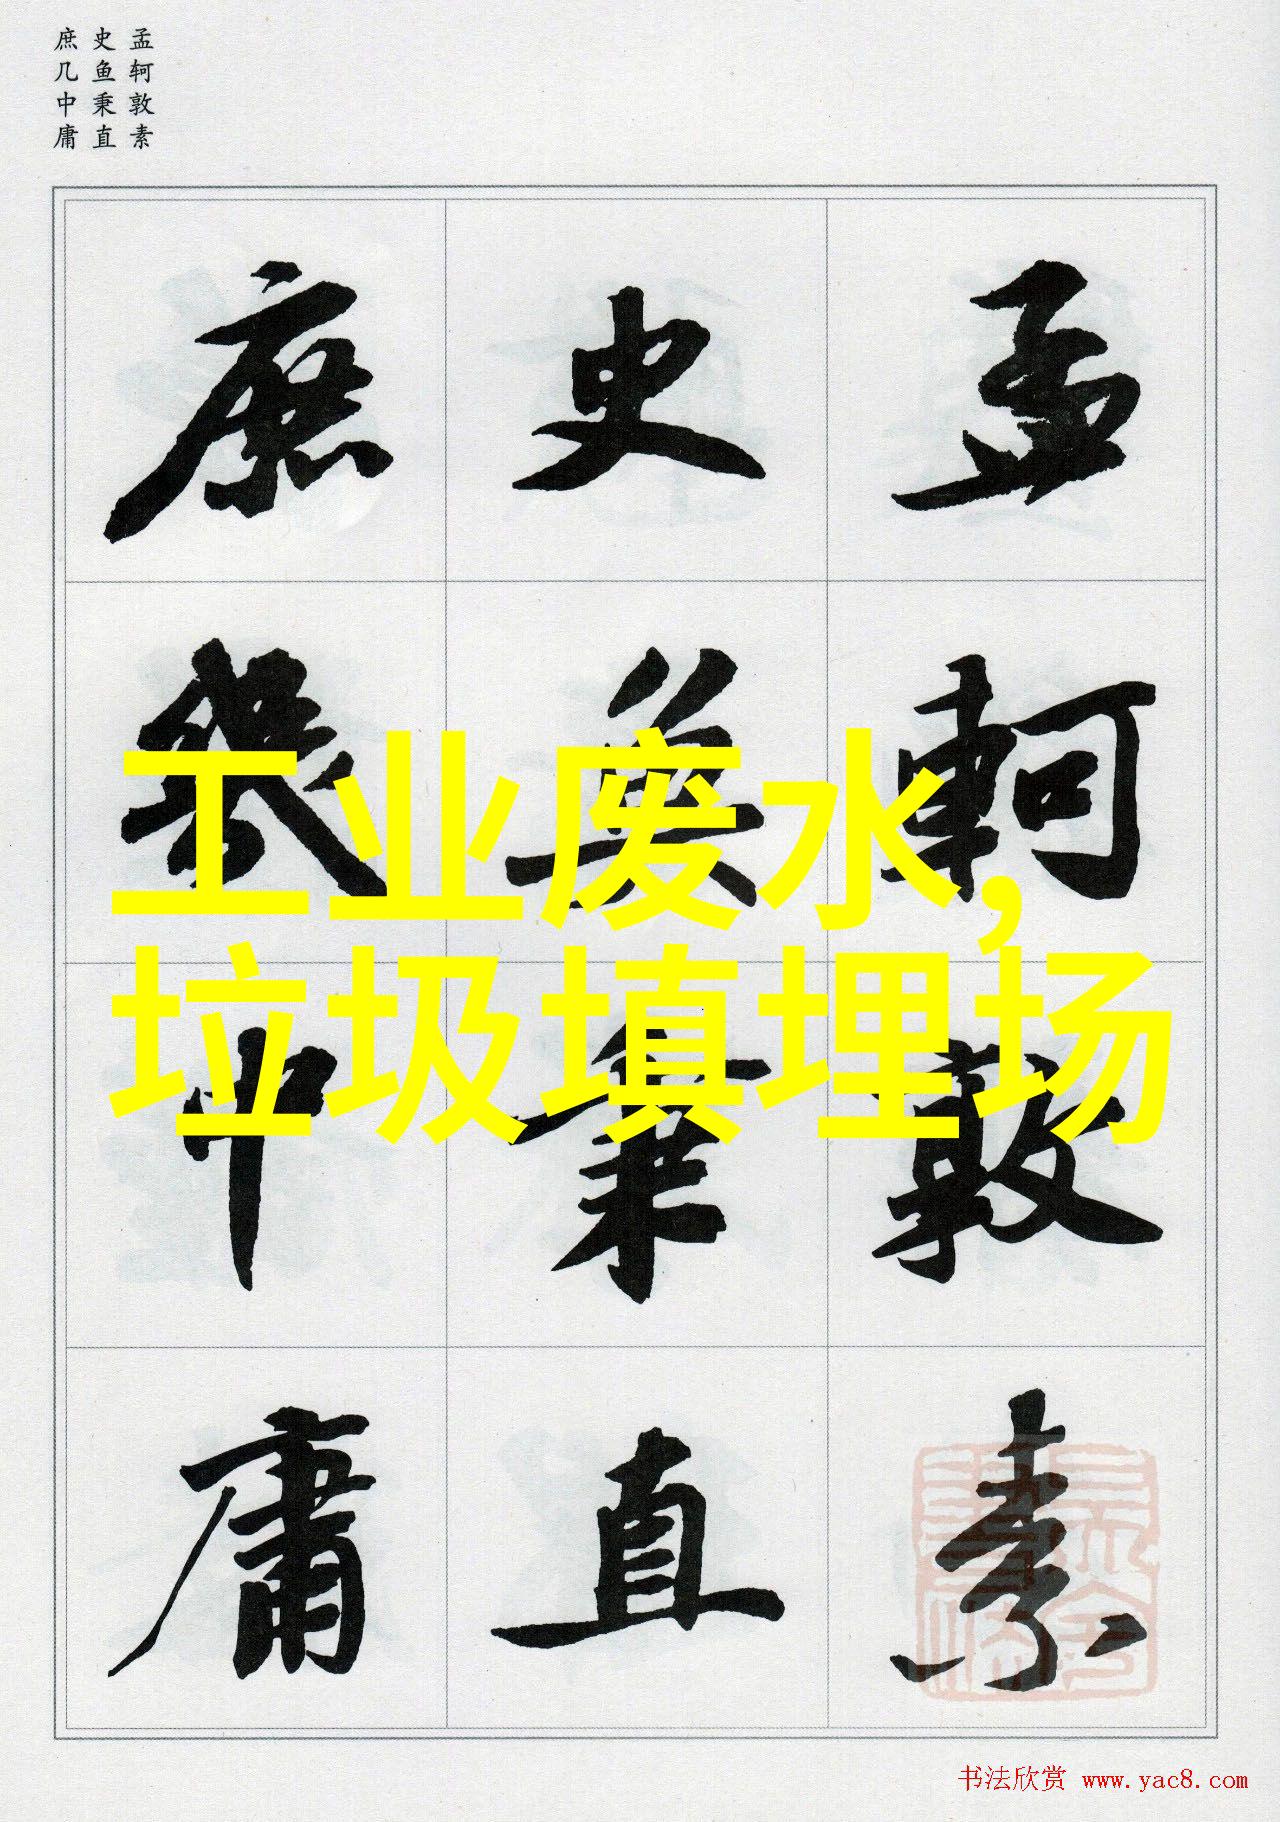 孟轲敦素
史鱼秉直
庶几中庸
孟軻敦素
史魚秉直
庶幾中庸
工业废水,
垃圾填埋场
书法欣赏 www.yac8.com